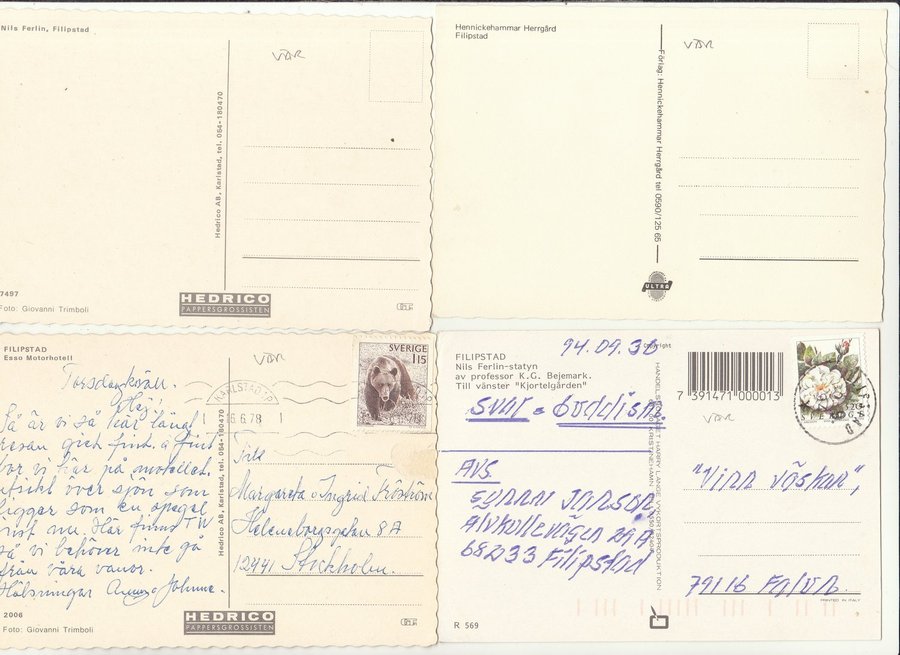 Nils Ferlin, Filipstad
VÄR
Hedrico AB, Karlstad, tel. 054-180470
7497
Foto: Giovanni Trimboli
HEDRICO
PAPPERSGROSSISTEN
Hennickehammar Herrgård
Filipstad
VÄR
Förlag: Hennickehammar Herrgård tel 0590/125 65
ULTRA
FILIPSTAD
Esso Motorhotell
VÄR
SVERIGE
115
KARLSTAD
16.6.78
Torsdagkväll.
Hej!
Så är vi så här långt
resan gick fint. å fint
bor vi här på motellet
utsikt över sjön som
ligger som en spegel
just nu. Här finns TV
så vi behöver inte gå
från våra vanor.
Hälsningar
Till
Margareta o Ingrid Fröström
Heleneborgsgatan 8A
12441 Stockholm.
Hedrico AB, Karlstad, tel. 054-180470
2006
Foto: Giovanni Trimboli
HEDRICO
PAPPERSGROSSISTEN
94.09.30
Copyright
FILIPSTAD
Nils Ferlin-statyn
av professor K.G. Bejemark.
Till vänster "Kjortelgården"
7 391471 000013
VÄR
svar =
AVS.
Janson
Älvkullevägen 29A
68233 Filipstad
"Vinn väskan",
79116 Falun.
PRINTED IN ITALY
R 569